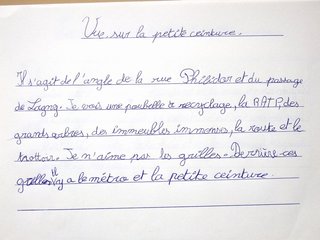 Vue sur la petite ceinture.
Il s'agit de l'angle de la rue Philidor et du passage
de Lagny. Je vois une poubelle de recyclage, la RATP, des
grands arbres, des immeubles immenses, la route et le
trottoir. Je n'aime pas les grilles. Derrière ces
grilles il y a le métro et la petite ceinture.